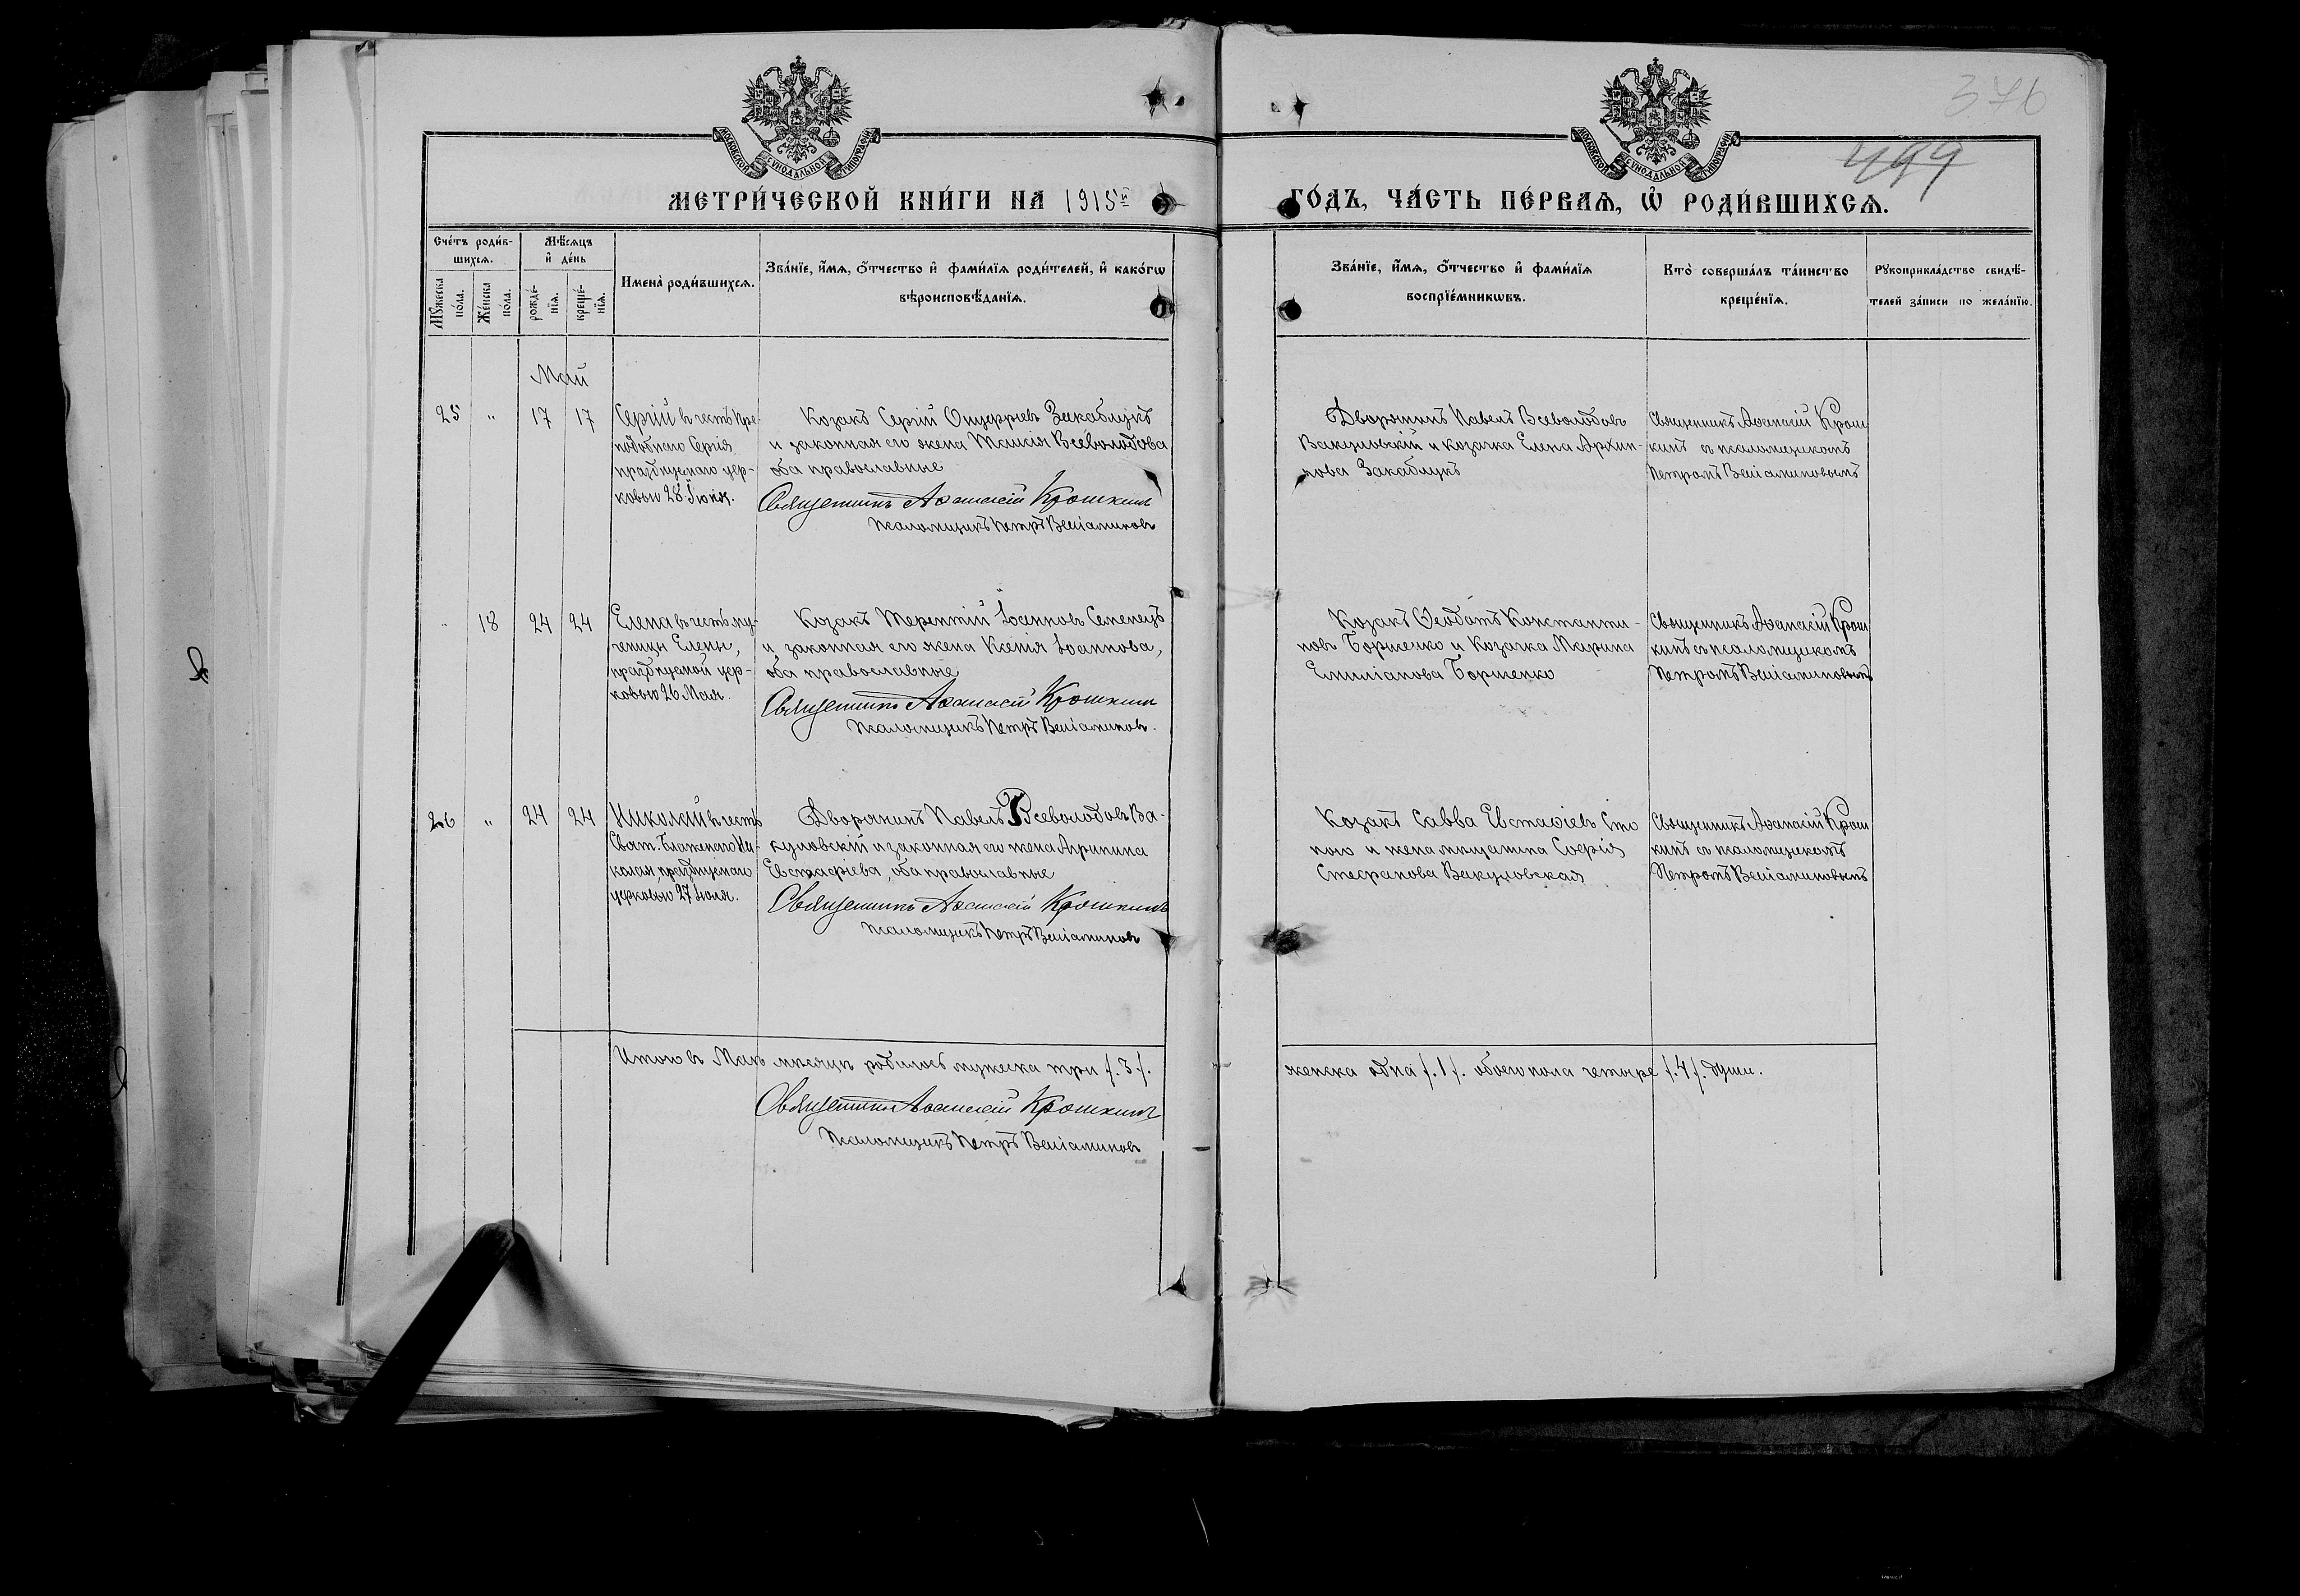 376
499
МОСКОВСКОЙ СѴНОДАЛЬНОЙ ТИПОГРАФІИ
МОСКОВСКОЙ СѴНОДАЛЬНОЙ ТИПОГРАФІИ
МЕТРИ́ЧЕСКОЙ КНИ́ГИ НА 1915й
ГО́ДЪ, ЧА́СТЬ ПЕ́РВАѦ, Ѡ҆ РОДИ́ВШИХСѦ.
Сче́тъ роди́в-
шихсѧ.
Мꙋ́жеска по́ла.
Же́нска по́ла.
Мѣ́сѧцъ
и҆ де́нь
рожде́-
нїѧ.
креще́-
нїѧ.
Имена̀ роди́вшихсѧ.
Зва́нїе, и҆́мѧ, ѻ҆́тчество и҆ фами́лїѧ роди́телей, и҆ како́гѡ
вѣроисповѣ́данїѧ.
Зва́нїе, и҆́мѧ, ѻ҆́тчество и҆ фами́лїѧ
воспрїе́мникѡвъ.
Кто̀ соверша́лъ та́инство
креще́нїѧ.
Рꙋкоприкла́дство свидѣ́-
телей за́писи по жела́нїю.
Май
25 " 17 17
Сергій въ честь Пре-
подобнаго Сергія
празднуемаго цер-
ковью 28 Іюня.
Козакъ Сергій Онуфріевъ Закаблукъ
и законная его жена Таисія Всеволодова
оба православные
Священникъ Аѳанасій Крошкинъ
Псаломщикъ Петръ Веніаминовъ
Дворянинъ Павелъ Всеволодовъ
Вакуловскій и козачка Елена Архип-
пова Закаблукъ
Священникъ Аѳанасій Крош
кинъ съ псаломщикомъ
Петромъ Веніаминовымъ
" 18 24 24
Елена въ честь му-
ченицы Елены,
празднуемой цер-
ковью 26 Мая.
Козакъ Терентій Іоанновъ Семенецъ
и законная его жена Ксенія Іоаннова,
оба православные
Священникъ Аѳанасій Крошкинъ
Псаломщикъ Петръ Веніаминовъ.
Козакъ Ѳеодотъ Константи-
новъ Борщенко и Козачка Марина
Емиліанова Борщенко
Священникъ Аѳанасій Крош
кинъ съ псаломщикомъ
Петромъ Веніаминовымъ
26 " 24 24
Николай въ честь
Свят. Блаженаго Ни-
колая, празднуемаго
церковью 27 Іюля.
Дворянинъ Павелъ Всеволодовъ Ва-
куловскій и законная его жена Агрипина
Евстафіева, оба православные
Священникъ Аѳанасій Крошкинъ
Псаломщикъ Петръ Веніаминовъ
Козакъ Савва Евстафіевъ
и жена мѣщанина Софія
Стефанова Вакуловская
Священникъ Аѳанасій Крош
кинъ съ псаломщикомъ
Петромъ Веніаминовымъ
Итого въ Маѣ мѣсяцѣ родилось мужеска три /.3/.
женска одна /.1/. обоего пола четыре /.4/. души.
Священникъ Аѳанасій Крошкинъ
Псаломщикъ Петръ Веніаминовъ